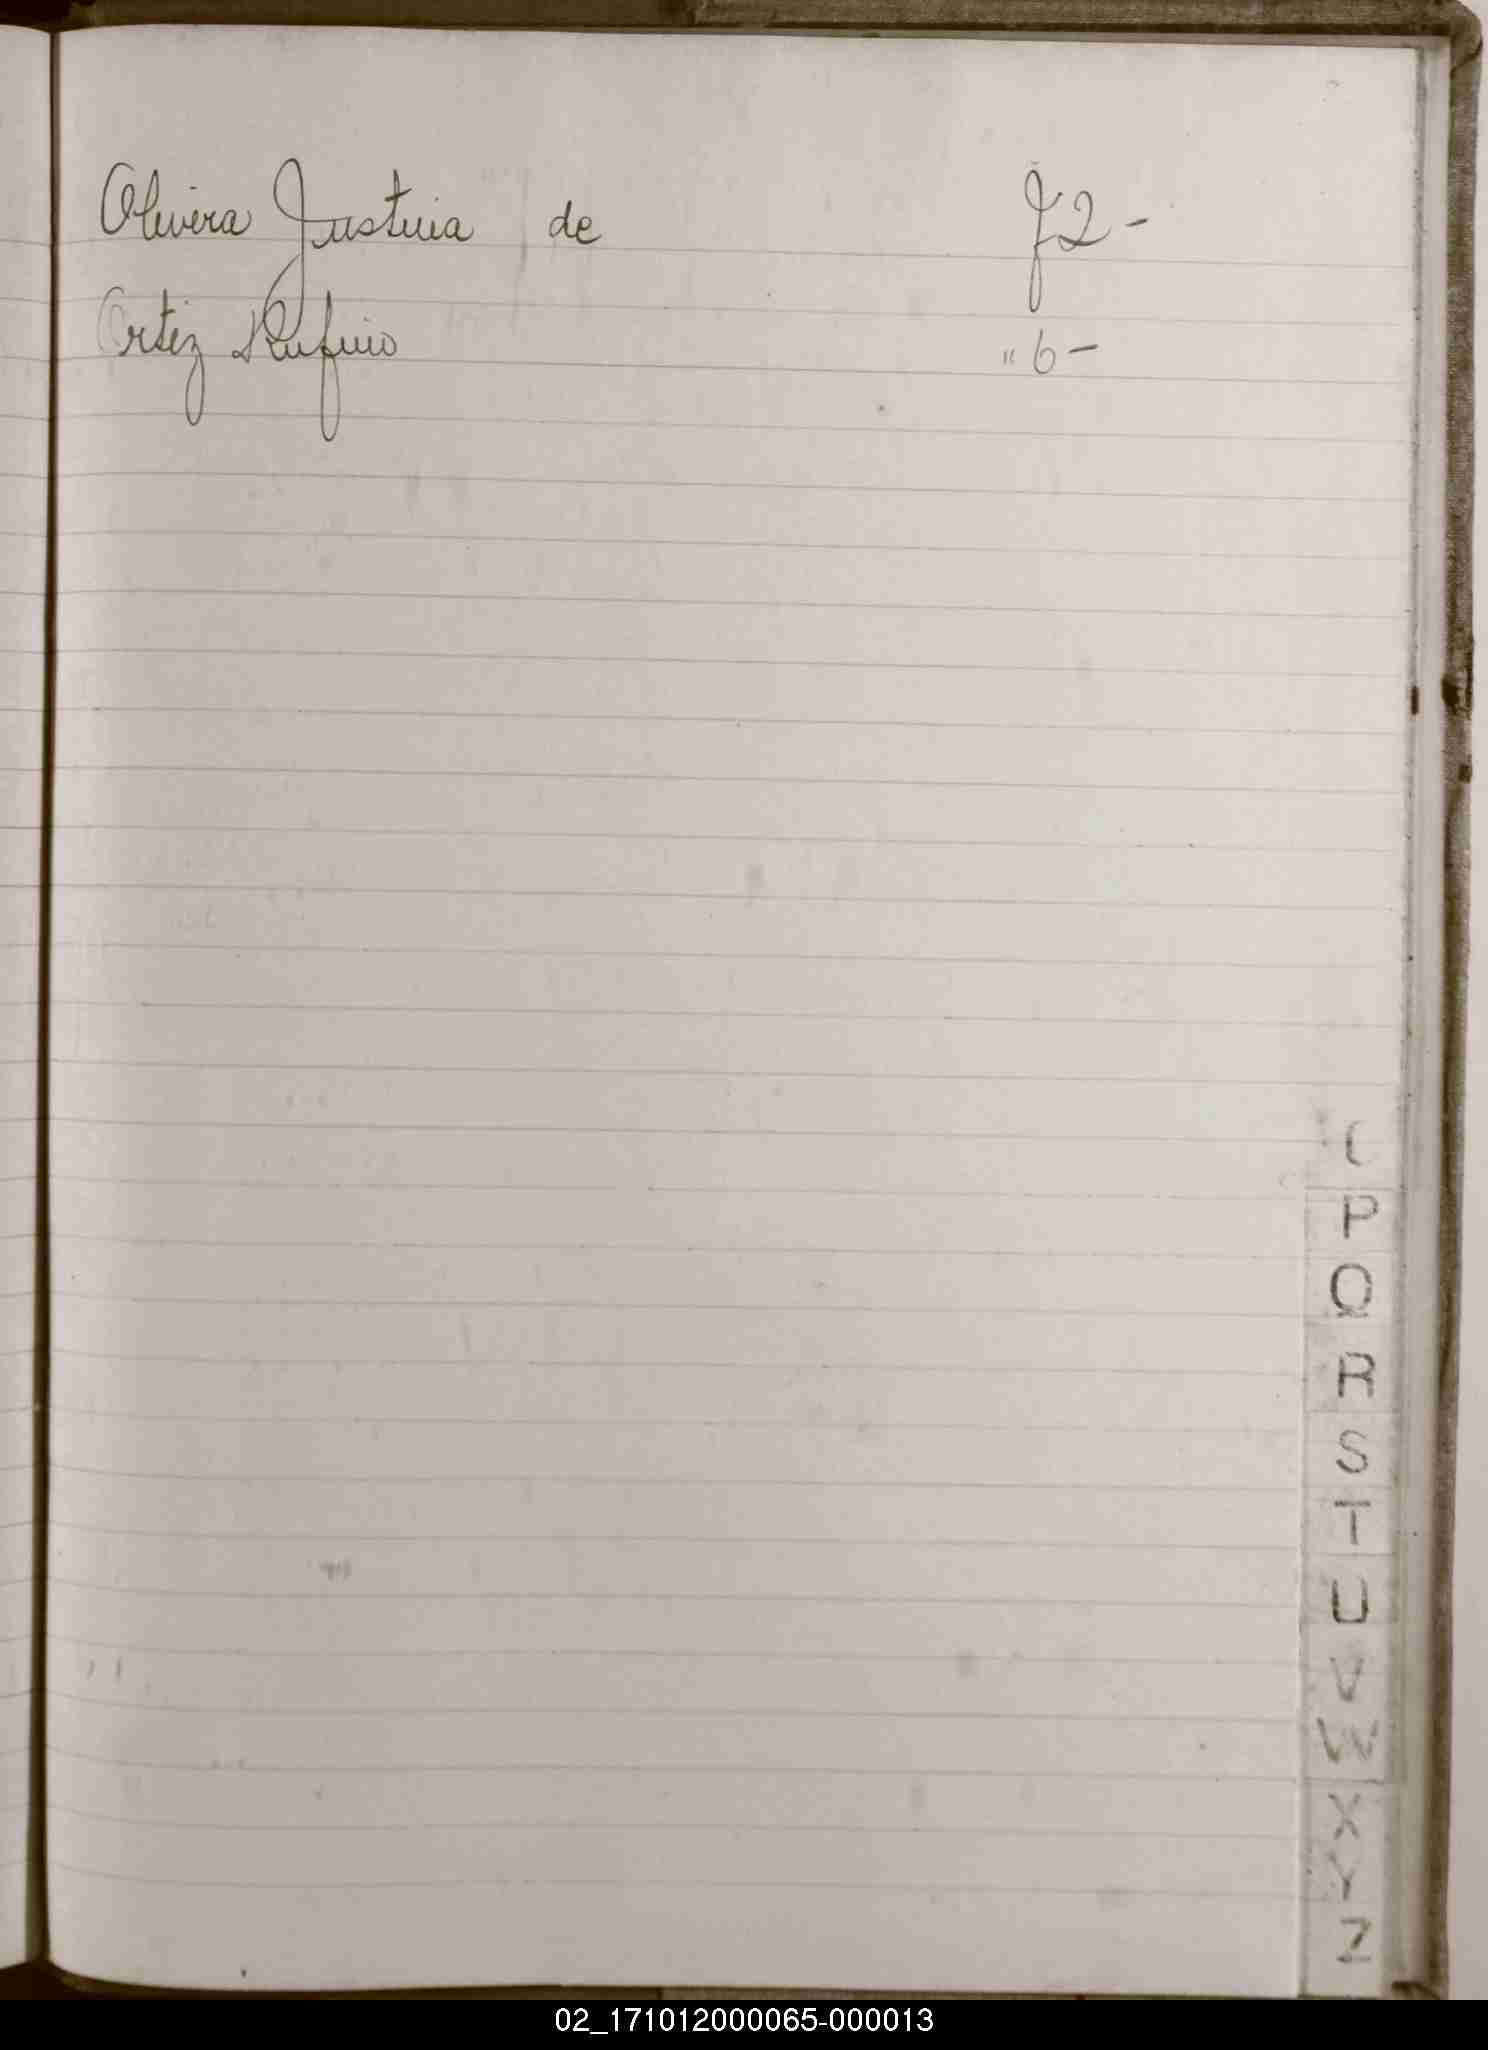 Olivera Justina de f 2 -
Ortiz Rufino " 6 -
P
Q
R
S
T
U
V
W
X
Y
Z
02_171012000065-000013